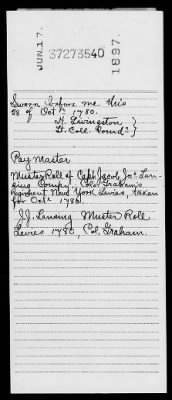 JUN. 17. 37273540 1897.
Sworn before me this
28 of Octr. 1780.
H. Livingston }
Lt. Coll. Comdt. }
Pay Master
Muster Roll of Captt Jacob Jno. Lan-
sing Compy, Colo. Graham's
Regiment New York Levies, taken
for Octr. 1780.
J.J. Lansing Muster Roll
Levies 1780, Col. Graham.